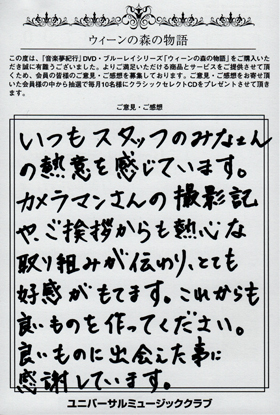 ウィーンの森の物語
この度は、「音楽夢紀行」DVD・ブルーレイシリーズ「ウィーンの森の物語」をご購入いた
だき誠に有難うございました。よりご満足いただける商品とサービスをご提供させて頂
くため、会員の皆様のご意見・ご感想を募集しております。ご意見・ご感想をお寄せ頂
いた会員様の中から抽選で毎月10名様にクラシックセレクトCDをプレゼントさせて頂き
ます。
ご意見・ご感想
いつもスタッフのみなさん
の熱意を感じています。
カメラマンさんの撮影記
や、ご挨拶からも熱心な
取り組みが伝わり、とても
好感がもてます。これからも
良いものを作ってください。
良いものに出会えた事に
感謝しています。
ユニバーサルミュージッククラブ